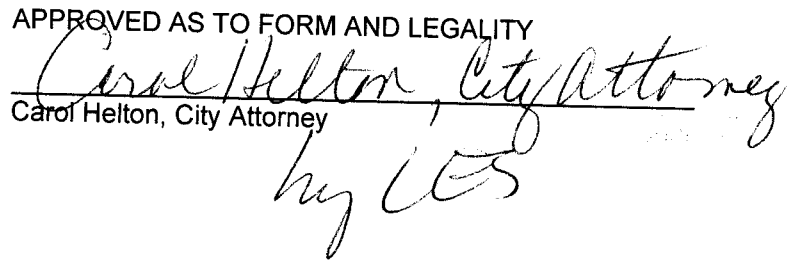 APPROVED AS TO FORM AND LEGALITY
Carol Helton, City Attorney
Carol Helton, City Attorney
by CES